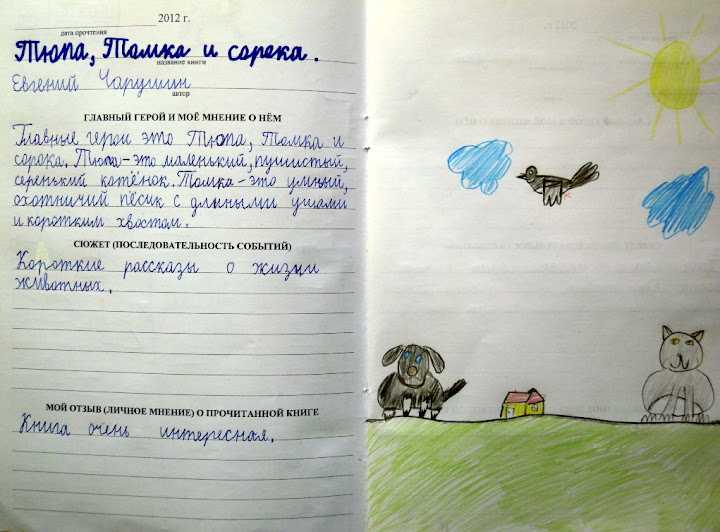 2012 г.
дата прочтения
Тюпа, Томка и сорока.
название книги
Евгений Чарушин
автор
ГЛАВНЫЙ ГЕРОЙ И МОЁ МНЕНИЕ О НЁМ
Главные герои это Тюпа, Томка и
сорока. Тюпа – это маленький, пушистый,
серенький котёнок. Томка – это умный,
охотничий пёсик с длиными ушами
и коротким хвостом.
СЮЖЕТ (ПОСЛЕДОВАТЕЛЬНОСТЬ СОБЫТИЙ)
Короткие рассказы о жизни
животных.
МОЙ ОТЗЫВ (ЛИЧНОЕ МНЕНИЕ) О ПРОЧИТАННОЙ КНИГЕ
Книга очень интересная.